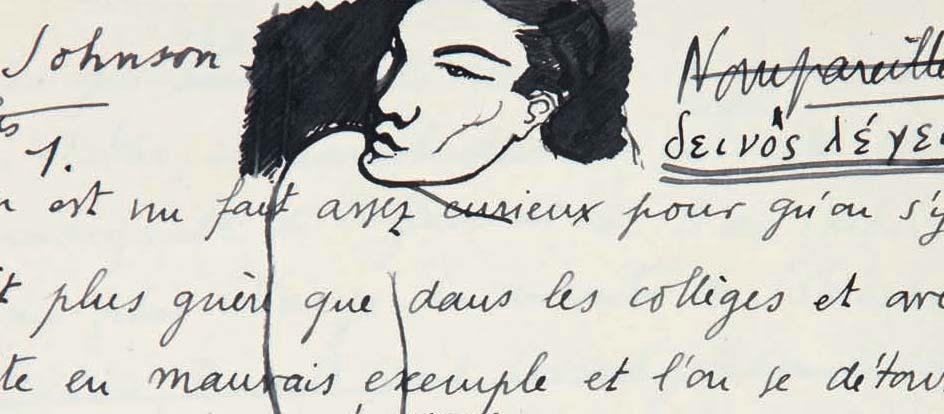 Johnson
Nompareille
δεινὸς λέγε
1.
est un fait assez curieux pour qu'on s'y
plus guère que dans les collèges et
te en mauvais exemple et l'on se détour